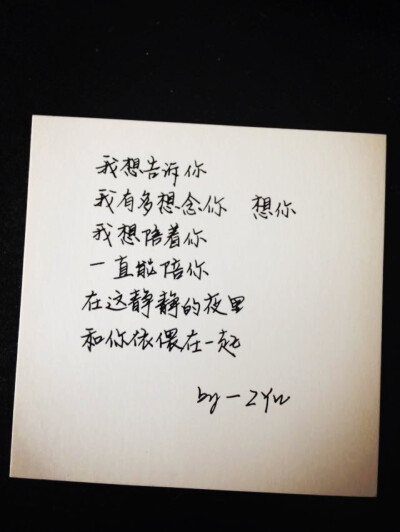 我想告诉你
我有多想念你 想你
我想陪着你
一直能陪你
在这静静的夜里
和你依偎在一起
by－ZYu